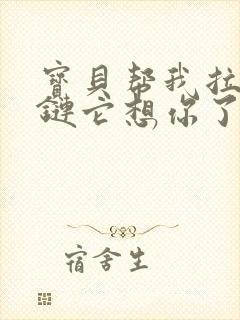 寳貝帮我拉
鏈它想你了
宿舍生